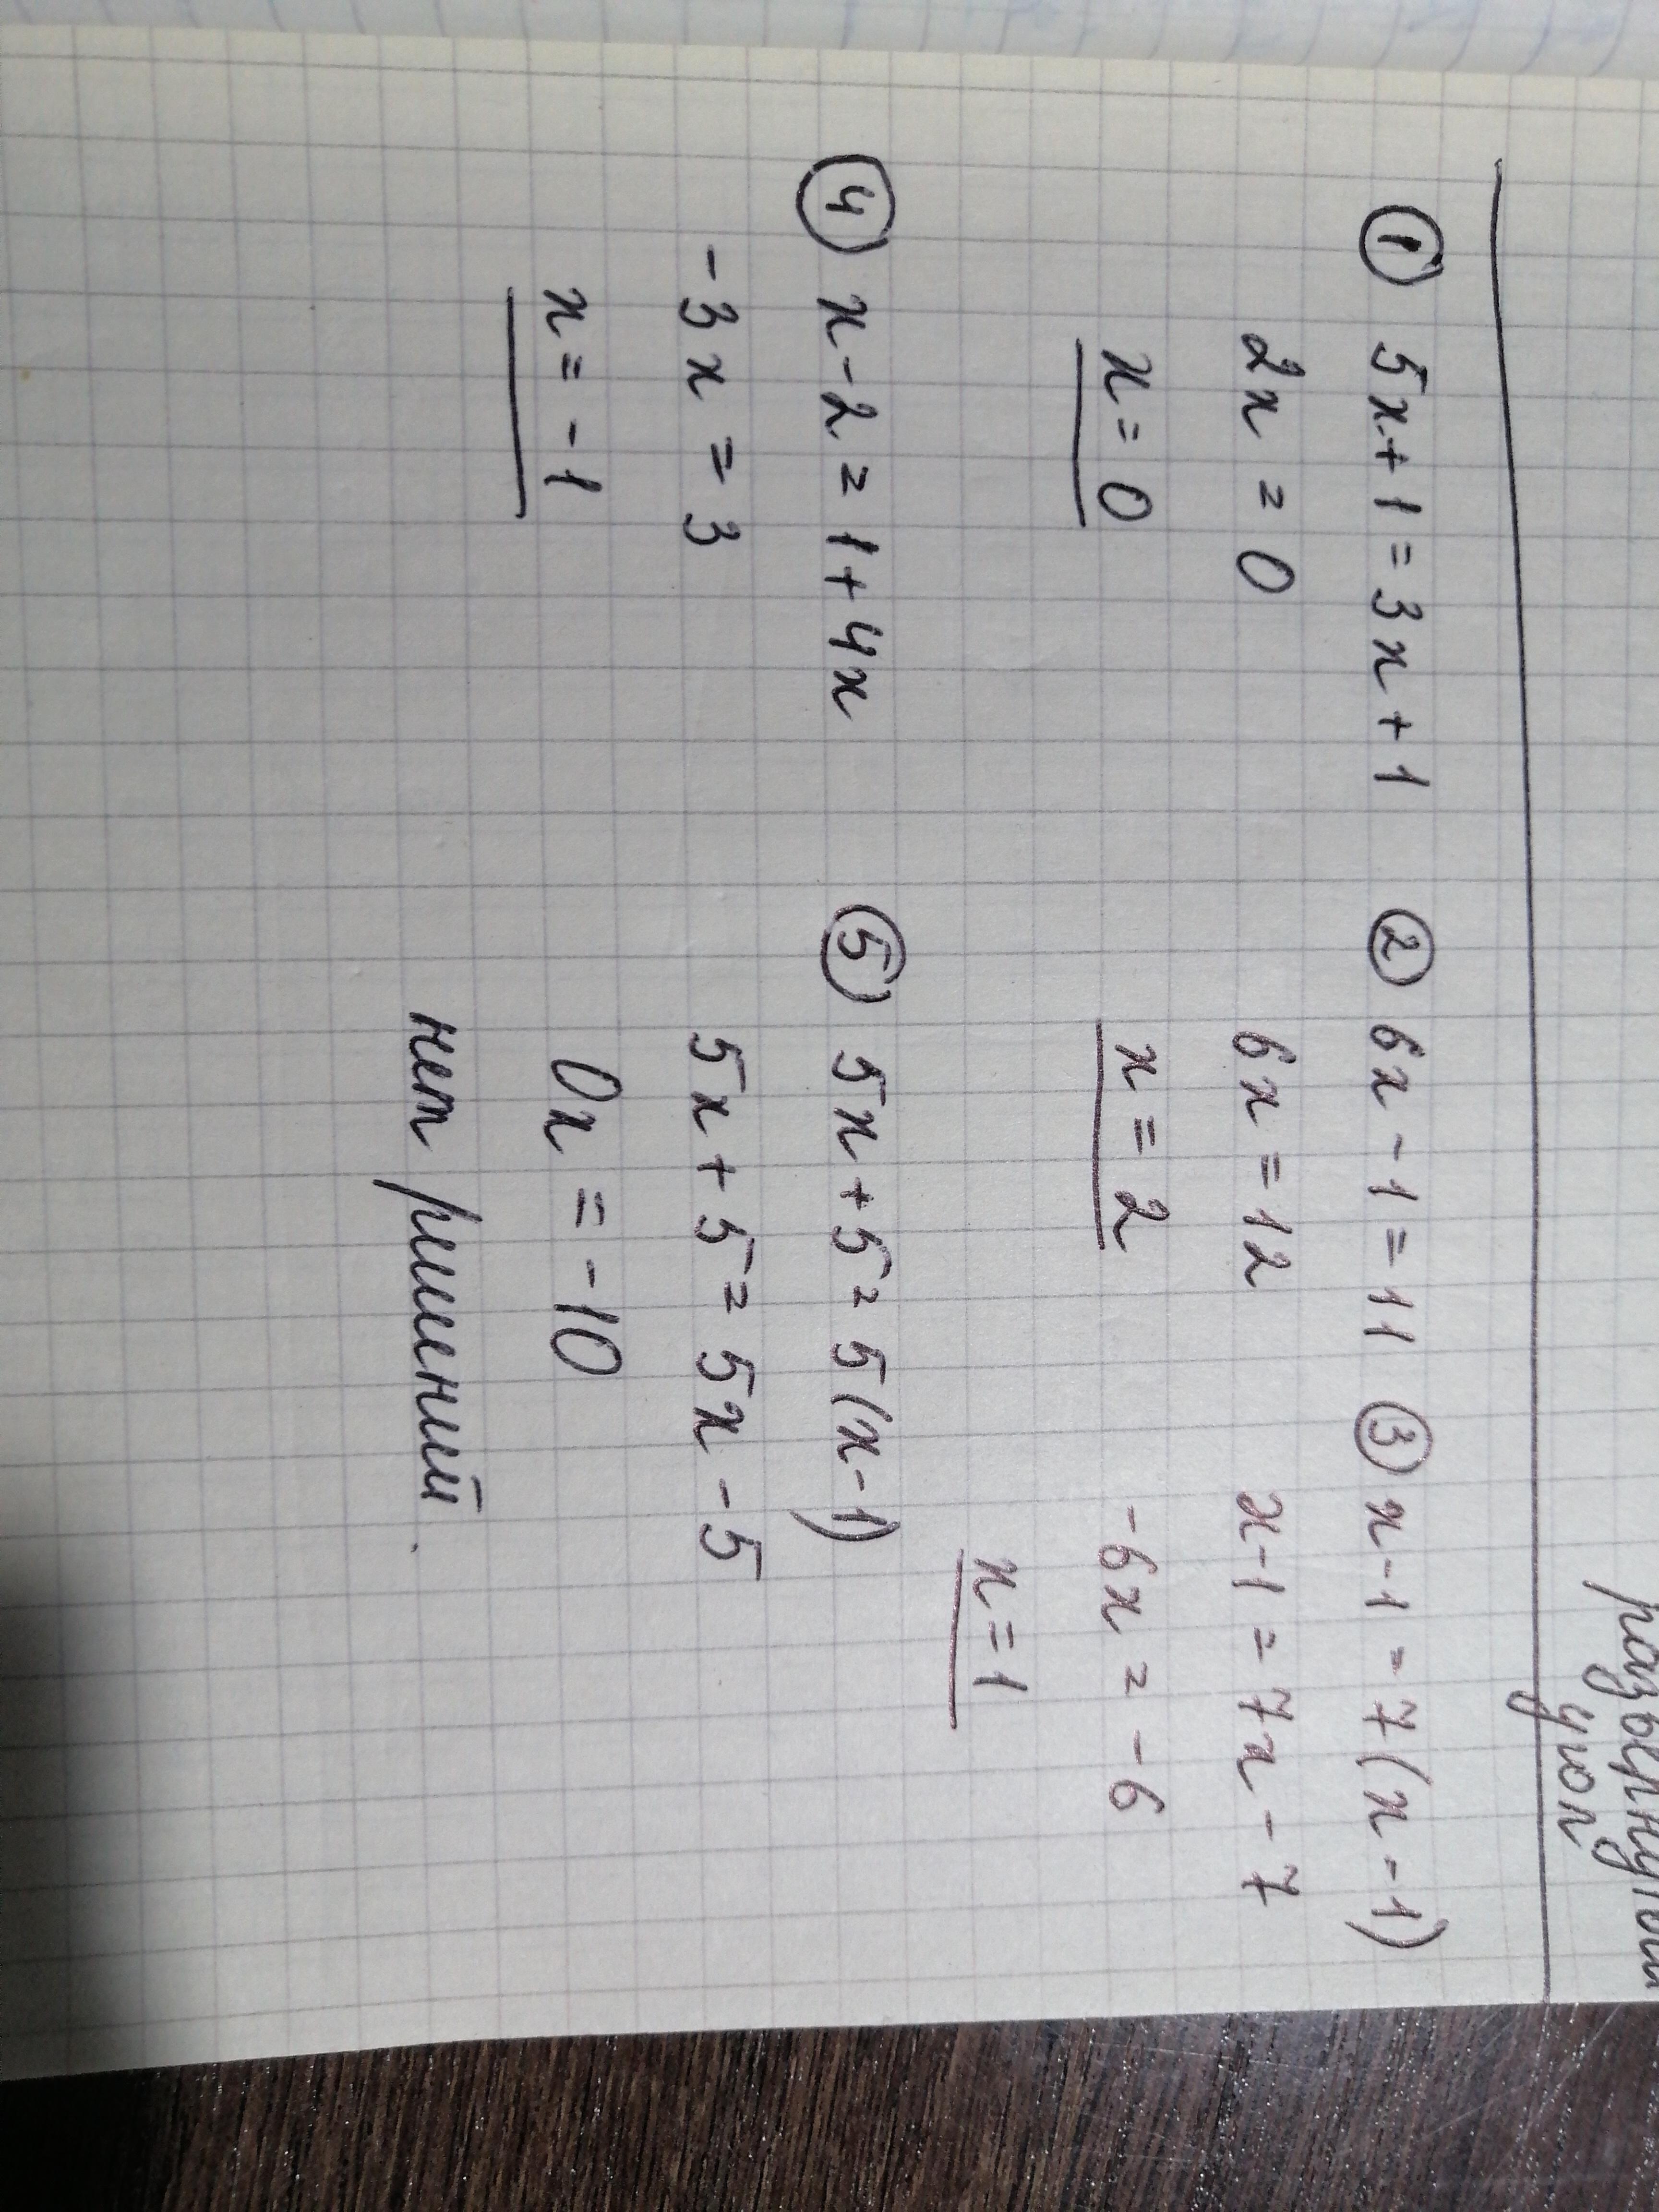 развернутый
угол
① 5x+1=3x+1
2x=0
x=0
② 6x-1=11
6x=12
x=2
③ x-1=7(x-1)
x-1=7x-7
-6x=-6
x=1
④ x-2=1+4x
-3x=3
x=-1
⑤ 5x+5=5(x-1)
5x+5=5x-5
0x=-10
нет решений.